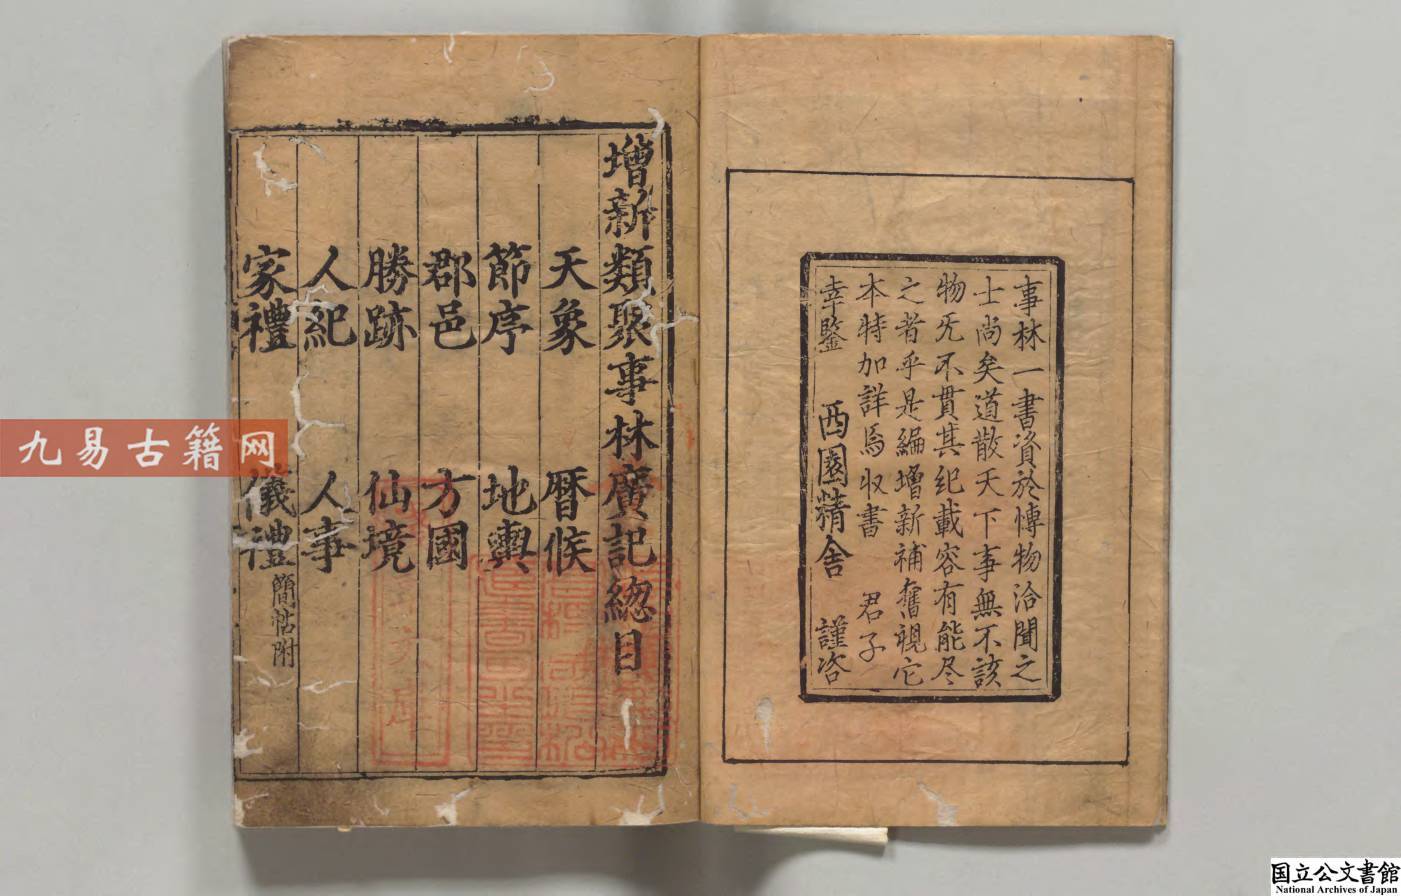 事林一書資於愽物洽聞之
士尚矣道散天下事無不該
物旡不貫其紀載容有能尽
之者乎是編增新補舊視它
本特加詳焉収書 君子
幸鑒 西園精舍 謹咨
增新類聚事林廣記緫目
天象 曆候
節序 地輿
郡邑 方國
勝跡 仙境
人紀 人事
家禮 儀禮簡帖附
九易古籍网
国立公文書館
National Archives of Japan